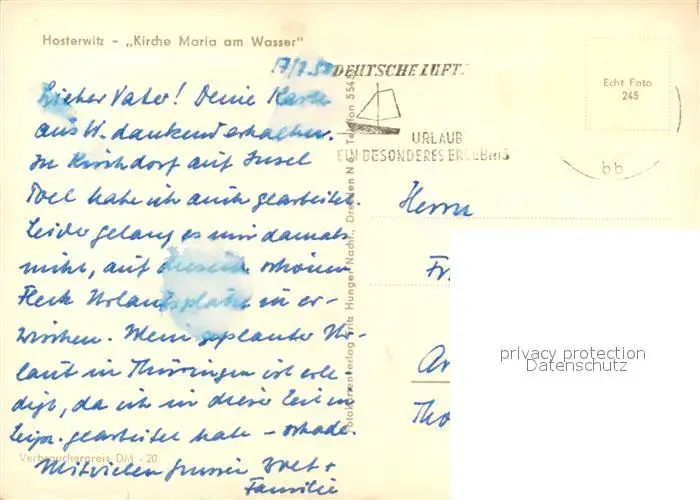 Hosterwitz - „Kirche Maria am Wasser"
17/7.58
Lieber Vater! Deine Karte
aus W. dankend erhalten.
In Kirchdorf auf Insel
Poel habe ich auch gearbeitet.
Leider gelang es mir damals
nicht, auf diesem schönen
Fleck Urlaubsplatz zu er-
wischen. Mein geplanter Ur-
laub in Thüringen ist erle
digt, da ich in dieser Zeit in
Leipz. gearbeitet habe - schade.
Mit vielen Grüssen
Familie
Verbraucherpreis DM -.20
Fotokartenverlag Fritz Hunger Nachf., Dresden N 6, Telefon 554
DEUTSCHE LUFT
URLAUB
EIN BESONDERES ERLEBNIS
Echt Foto
245
bb
Herrn
Fr.
privacy protection
Datenschutz